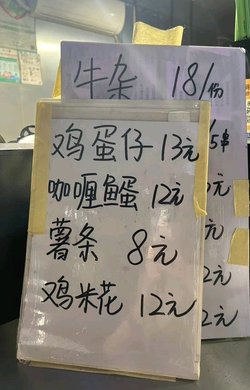 牛杂 18/份
5串
鸡蛋仔 13元
咖喱鱼蛋 12元
薯条 8元
鸡米花 12元
元
2元
2元